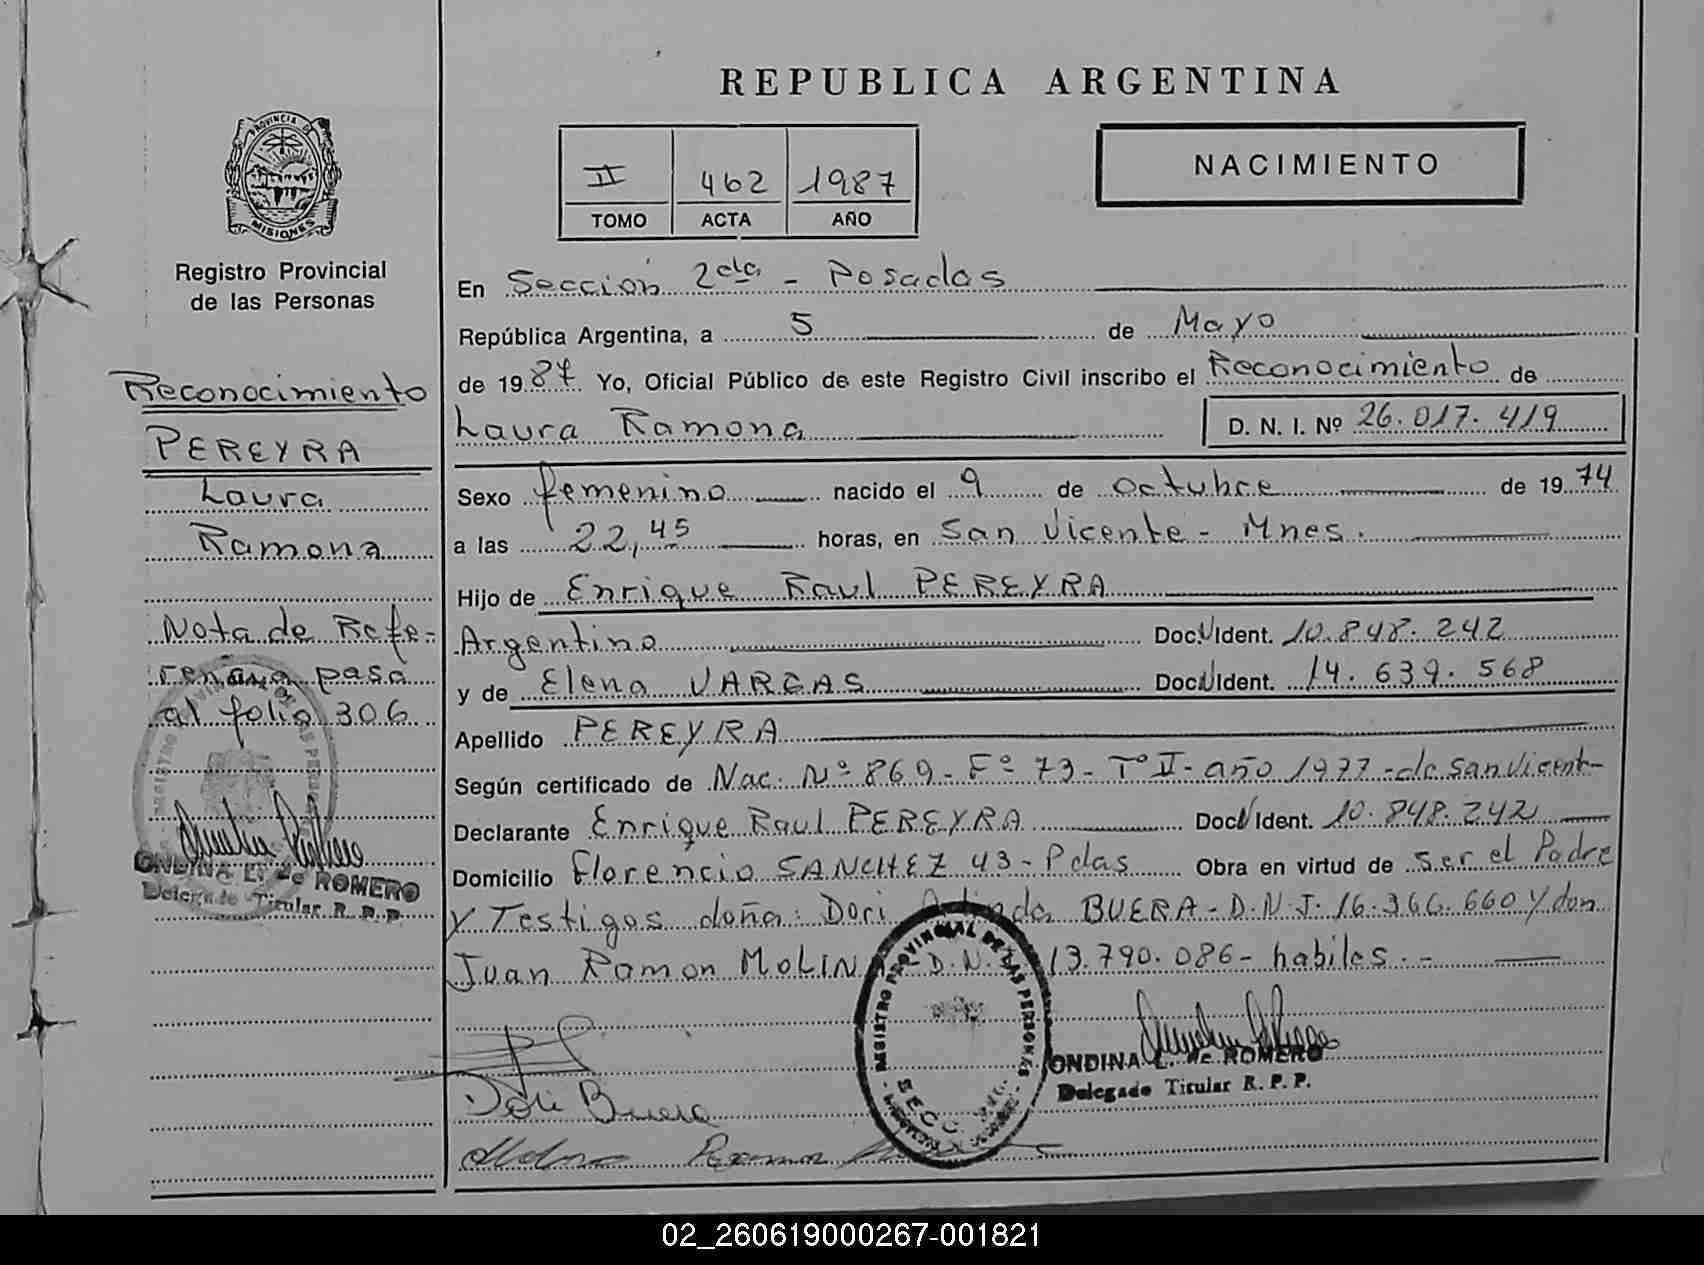 REPUBLICA ARGENTINA
PROVINCIA DE
MISIONES
Registro Provincial
de las Personas
II 462 1987
TOMO ACTA AÑO
NACIMIENTO
En Sección 2da - Posadas
República Argentina, a 5 de Mayo
de 1987 Yo, Oficial Público de este Registro Civil inscribo el Reconocimiento de
Laura Ramona D. N. I. Nº 26.017.419
Sexo femenino nacido el 9 de octubre de 1974
a las 22,45 horas, en San Vicente - Mnes.
Hijo de Enrique Raul PEREYRA
Argentino Doc. Ident. 10.848.242
y de Elena VARGAS Doc. Ident. 14.639.568
Apellido PEREYRA
Según certificado de Nac. Nº 869 - Fº 73 - Tº II - año 1977 - de San Vicent-
Declarante Enrique Raul PEREYRA Doc. Ident. 10.848.242
Domicilio Florencio SANCHEZ 43 - Pdas Obra en virtud de ser el Padre
y Testigos doña: Dori BUERA - D.N.I. 16.366.660 y don
Juan Ramon MOLIN D.N. 13.790.086 - habiles. -
Dori Buera
Ramon
REGISTRO PROVINCIAL DE LAS PERSONAS
SECC
ONDINA L. de ROMERO
Delegado Titular R. P. P.
Reconocimiento
PEREYRA
Laura
Ramona
Nota de Refe-
rencia pasa
al folio 306
ONDINA L. de ROMERO
Delegado Titular R. P. P.
02_260619000267-001821